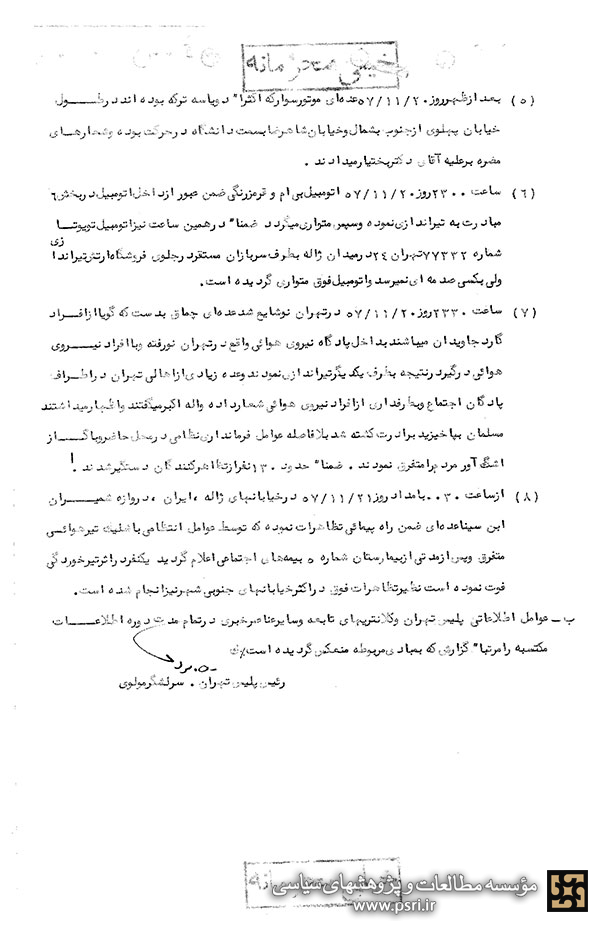 خیلی محرمانه
(۵) بعد از ظهر روز ۵۷/۱۱/۲۰ عده‌ای موتورسوار که اکثرا" دو یا سه ترکه بوده اند در طـــول
خیابان پهلوی از جنوب بشمال و خیابان شاهرضا بسمت دانشگاه در حرکت بوده و شعارهای
مضره بر علیه آقای دکتر بختیار میدادند .
(۶) ساعت ۲۳۰۰ روز ۵۷/۱۱/۲۰ اتومبیل بی ام و قرمز رنگی ضمن عبور از داخل اتومبیل در بخش ۶
مبادرت به تیراندازی نموده و سپس متواری میگردد ضمنا" در همین ساعت نیز اتومبیل تویوتـــا
شماره ۷۷۳۳۲ تهران ۲۴ در میدان ژاله بطرف سربازان مستقر در جلوی فروشگاه ارتش تیراندازی
ولی بکسی صدمه ای نمیرسد و اتومبیل فوق متواری گردیده است.
(۷) ساعت ۲۳۳۰ روز ۵۷/۱۱/۲۰ در تهران نو شایع شد عده‌ای چماق بدست که گویا از افـــراد
گارد جاویدان میباشند بداخل پادگاه نیروی هوائی واقع در تهران نو رفته و با افراد نیـــروی
هوائی درگیر در نتیجه بطرف یکدیگر تیراندازی نمودند و عده زیادی از اهالی تهران در اطراف
پادگان اجتماع و بطرفداری از افراد نیروی هوائی شعار داده و اله اکبر میگفتند و اظهار میداشتند
مسلمان بپاخیزید برادرت کشته شد بلافاصله عوامل فرمانداری نظامی در محل حاضر و با گـــاز
اشگ آور مردم را متفرق نمودند . ضمنا" حدود ۱۳۰ نفر از تظاهرکنندگان دستگیر شدند .
(۸) از ساعت ۰۰۳۰ بامداد روز ۵۷/۱۱/۲۱ در خیابانهای ژاله ، ایران ، دروازه شمیـــران
ابن سینا عده‌ای ضمن راه پیمائی تظاهرات نموده که توسط عوامل انتظامی با شلیک تیر هوائـی
متفرق و پس از مدتی از بیمارستان شماره ۵ بیمه‌های اجتماعی اعلام گردید یکنفر در اثر تیرخوردگی
فوت نموده است نظیر تظاهرات فوق در اکثر خیابانهای جنوبی شهر نیز انجام شده است.
ب ـ عوامل اطلاعاتی پلیس تهران و کلانتریهای تابعه و سایر عناصر خبری در تمام مدت دوره اطلاعـــات
مکتسبه را مرتبا" گزارش که بمبادی مربوطه منعکس گردیده است
رئیس پلیس تهران . سرلشگر مولوی
مؤسسه مطالعات و پژوهشهای سیاسی
www.psri.ir